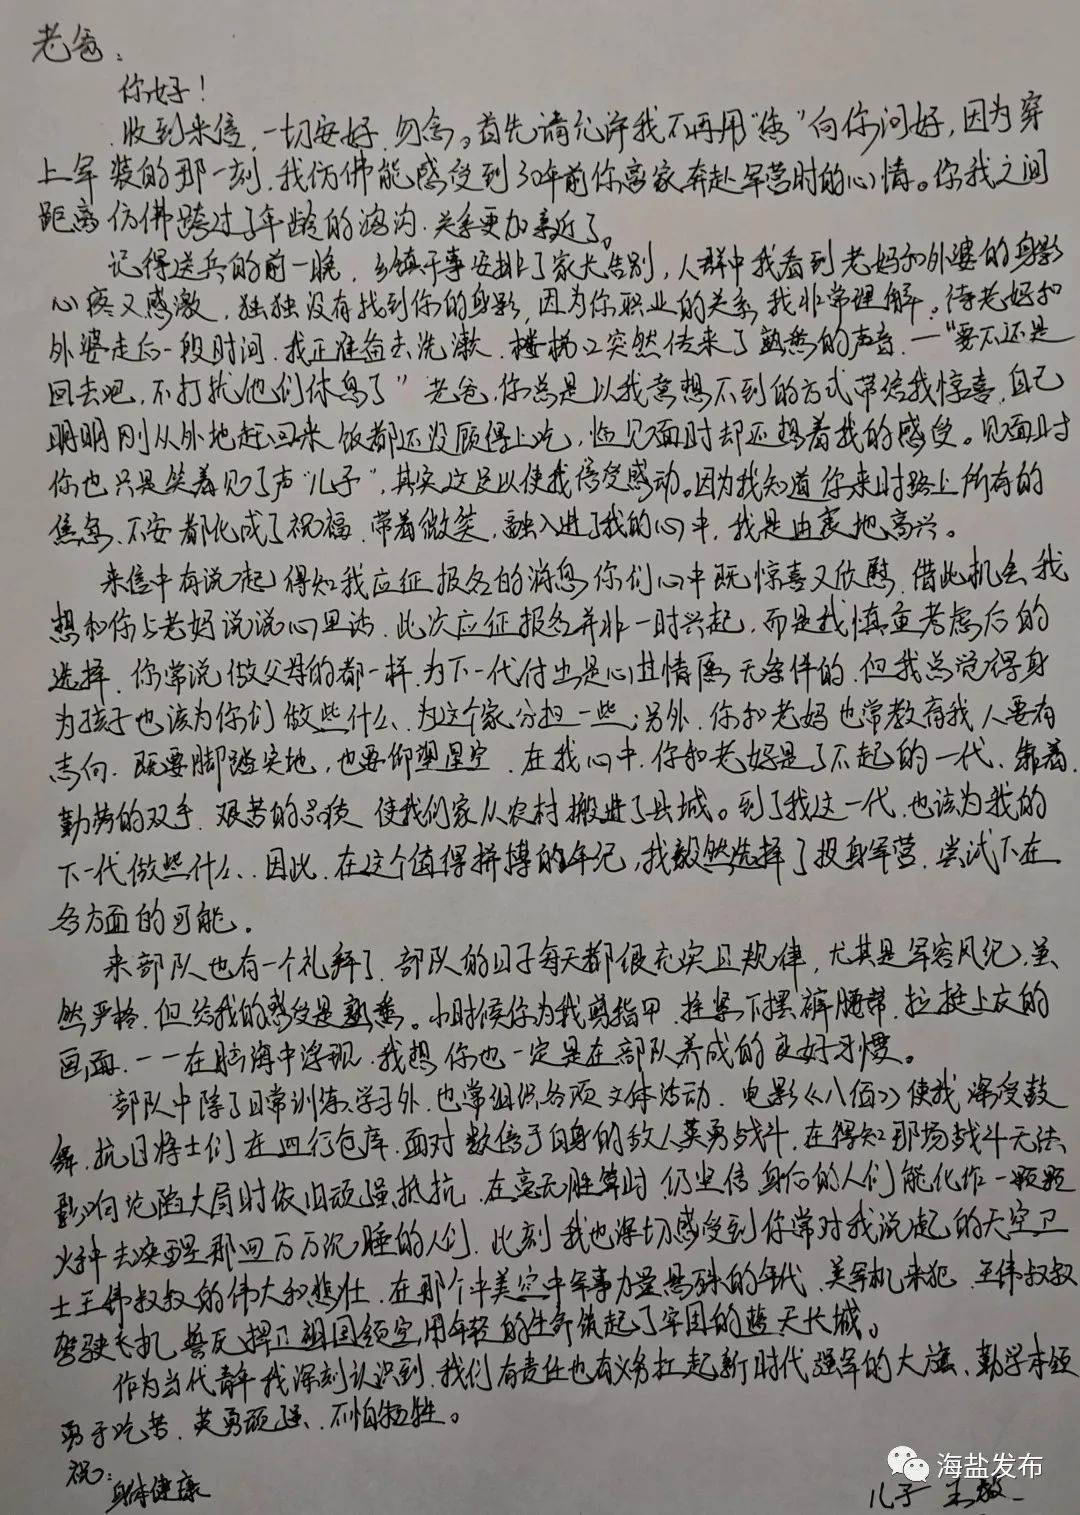 老爸：
你好！
收到来信，一切安好，勿念。首先请允许我不再用“您”向你问好，因为穿
上军装的那一刻，我仿佛能感受到30年前你离家奔赴军营时的心情。你我之间
距离仿佛跨过了年龄的鸿沟，关系更加亲近了。
记得送兵的前一晚，乡镇干事安排了家长告别，人群中我看到老妈和外婆的身影
心疼又感激，独独没有找到你的身影，因为你职业的关系，我非常理解。待老妈和
外婆走后一段时间，我正准备去洗漱，楼梯口突然传来了熟悉的声音，一“要不还是
回去吧，不打扰他们休息了”老爸，你总是以我意想不到的方式带给我惊喜，自己
明明刚从外地赶回来饭都还没顾得上吃，临见面时却还想着我的感受。见面时
你也只是笑着见了声“儿子”，其实这足以使我倍受感动。因为我知道你来时路上所有的
焦急、不安都化成了祝福，带着微笑，融入进了我的心中，我是由衷地高兴。
来信中有说起得知我应征报名的消息你们心中既惊喜又欣慰，借此机会我
想和你与老妈说说心里话，此次应征报名并非一时兴起，而是我慎重考虑后的
选择，你常说做父母的都一样，为下一代付出是心甘情愿、无条件的，但我总觉得身
为孩子也该为你们做些什么、为这个家分担一些；另外，你和老妈也常教育我人要有
志向，既要脚踏实地，也要仰望星空，在我心中，你和老妈是了不起的一代、靠着
勤劳的双手、艰苦的品质，使我们家从农村搬进了县城。到了我这一代，也该为我的
下一代做些什么、因此，在这个值得拼搏的年纪，我毅然选择了投身军营，尝试下在
各方面的可能。
来部队也有一个礼拜了，部队的日子每天都很充实且规律，尤其是军容风纪，虽
然严格，但给我的感受是熟悉。小时候你为我剪指甲，拴紧下摆裤腰带，拉挺上衣的
画面，一一在脑海中浮现，我想你也一定是在部队养成的良好习惯。
部队中除了日常训练、学习外，也常组织各项文体活动，电影《八佰》使我深受鼓
舞，抗日将士们在四行仓库，面对数倍于自身的敌人英勇战斗，在得知那场战斗无法
影响沦陷大局时依旧顽强抵抗，在毫无胜算时，仍坚信身后的人们能化作一颗颗
火种去唤醒那四万万沉睡的人们，此刻我也深切感受到你常对我说起的天空卫
士王伟叔叔的伟大和悲壮，在那个中美空中军事力量悬殊的年代，美军机来犯，王伟叔叔
驾驶飞机，誓死捍卫祖国领空，用年轻的生命筑起了牢固的蓝天长城。
作为当代青年我深刻认识到，我们有责任也有义务扛起新时代强军的大旗、勤学本领
勇于吃苦、英勇顽强、不怕牺牲。
祝：
身体健康
儿子 王
海盐发布